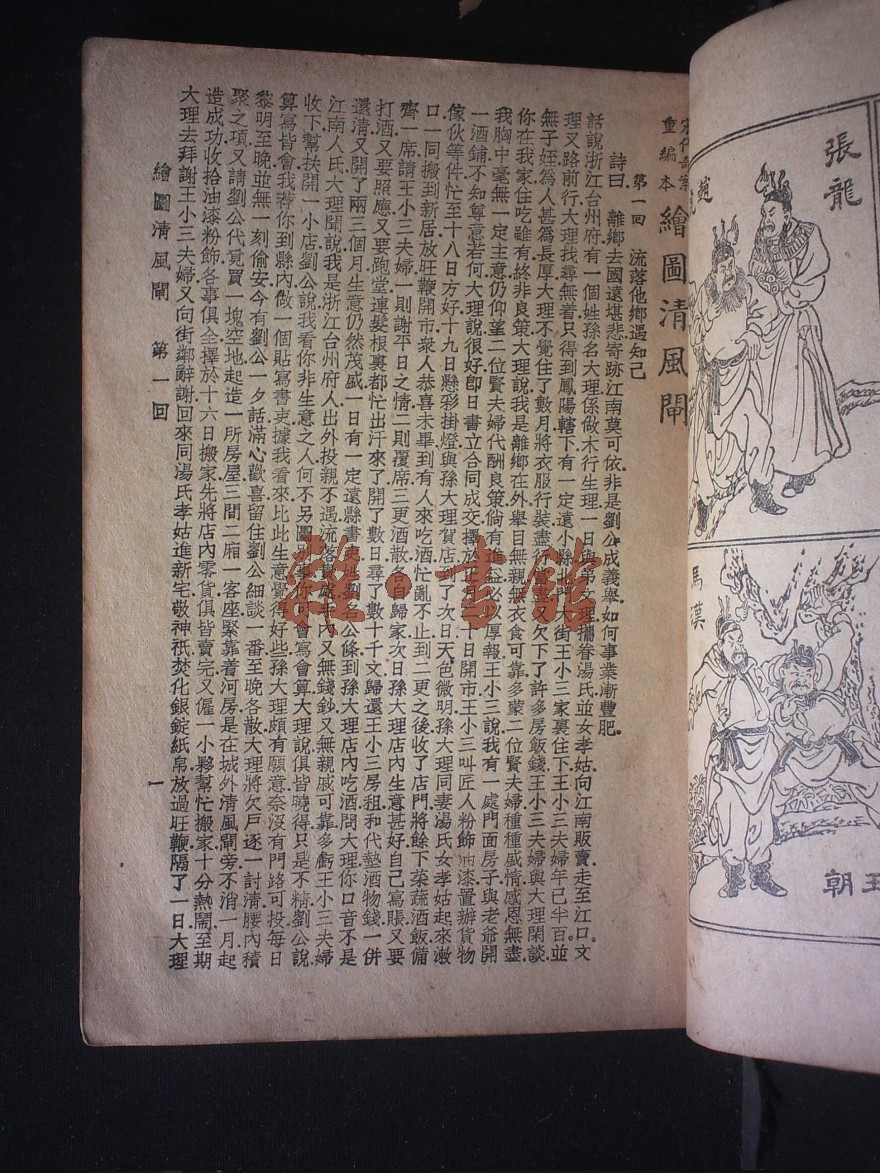 張龍
趙
馬漢
王朝
宋代奇案
重編本
繪圖清風閘
第一回 流落他鄉遇知己
詩曰 離鄉去國遠堪悲寄跡江南莫可依非是劉公成義舉如何事業漸豐肥
話說浙江台州府有一個姓孫名大理係做木行生理一日與弟文理攜眷湯氏並女孝姑向江南販賣走至江口文
理叉路前行大理找尋無着只得到鳳陽轄下有一定遠小縣北門大街王小三家裏住下王小三夫婦年已半百並
無子姪為人甚為長厚大理不覺住了數月將衣服行裝盡行賣盡又欠下了許多房飯錢王小三夫婦與大理閑談
你在我家住吃雖有終非良策大理說我是離鄉在外舉目無親無衣食可靠多蒙二位賢夫婦種種戚情感恩無盡
我胸中毫無一定主意仍仰望二位賢夫婦代酬良策倘有進益必以厚報王小三說我有一處門面房子與老爺開
一酒鋪不知尊意若何大理說很好卽日書立合同成交擇於正月二十日開市王小三叫匠人粉飾油漆置辦貨物
傢伙等件忙至十八日方好十九日懸彩掛燈與孫大理賀店到了次日天色微明孫大理同妻湯氏女孝姑起來漱
口一同搬到新居放旺鞭開市衆人恭喜未畢到有人來吃酒忙亂不止到二更之後收了店門將餘下菜蔬酒飯備
齊一席請王小三夫婦一則謝平日之情二則覆席三更酒散各自歸家次日孫大理店內生意甚好自己寫賬又要
打酒又要照應又要跑堂連髮根裏都忙出汗來了開了數日尋了數十千文歸還王小三房租和代墊酒物錢一併
還清又開了兩三個月生意仍然茂盛一日有一定遠縣書吏姓劉名公條到孫大理店內吃酒問大理你口音不是
江南人氏大理聞說我是浙江台州府人出外投親不遇流落貴處手內又無錢鈔又無親戚可靠多虧王小三夫婦
收下幫扶開一小店劉公說我看你非生意之人何不另圖別事你可會寫會算大理說俱皆曉得只是不精劉公說
算寫皆會我荐你到縣內做一個貼寫書吏據我看來比此生意覺得好些孫大理頗有願意奈沒有門路可投每日
黎明至晚並無一刻偷安今有劉公一夕話滿心歡喜留住劉公細談一番至晚各散大理將欠戶逐一討清腰內積
聚之項又請劉公代覓買一塊空地起造一所房屋三間二廂一客座緊靠着河房是在城外清風閘旁不消一月起
造成功收拾油漆粉飾各事俱全擇於十六日搬家先將店內零貨俱皆賣完又僱一小夥幫忙搬家十分熱鬧至期
大理去拜謝王小三夫婦又向街鄰辭謝回來同湯氏孝姑進新宅敬神祇焚化銀錠紙帛放過旺鞭隔了一日大理
繪圖清風閘 第一回
一
雜·書館